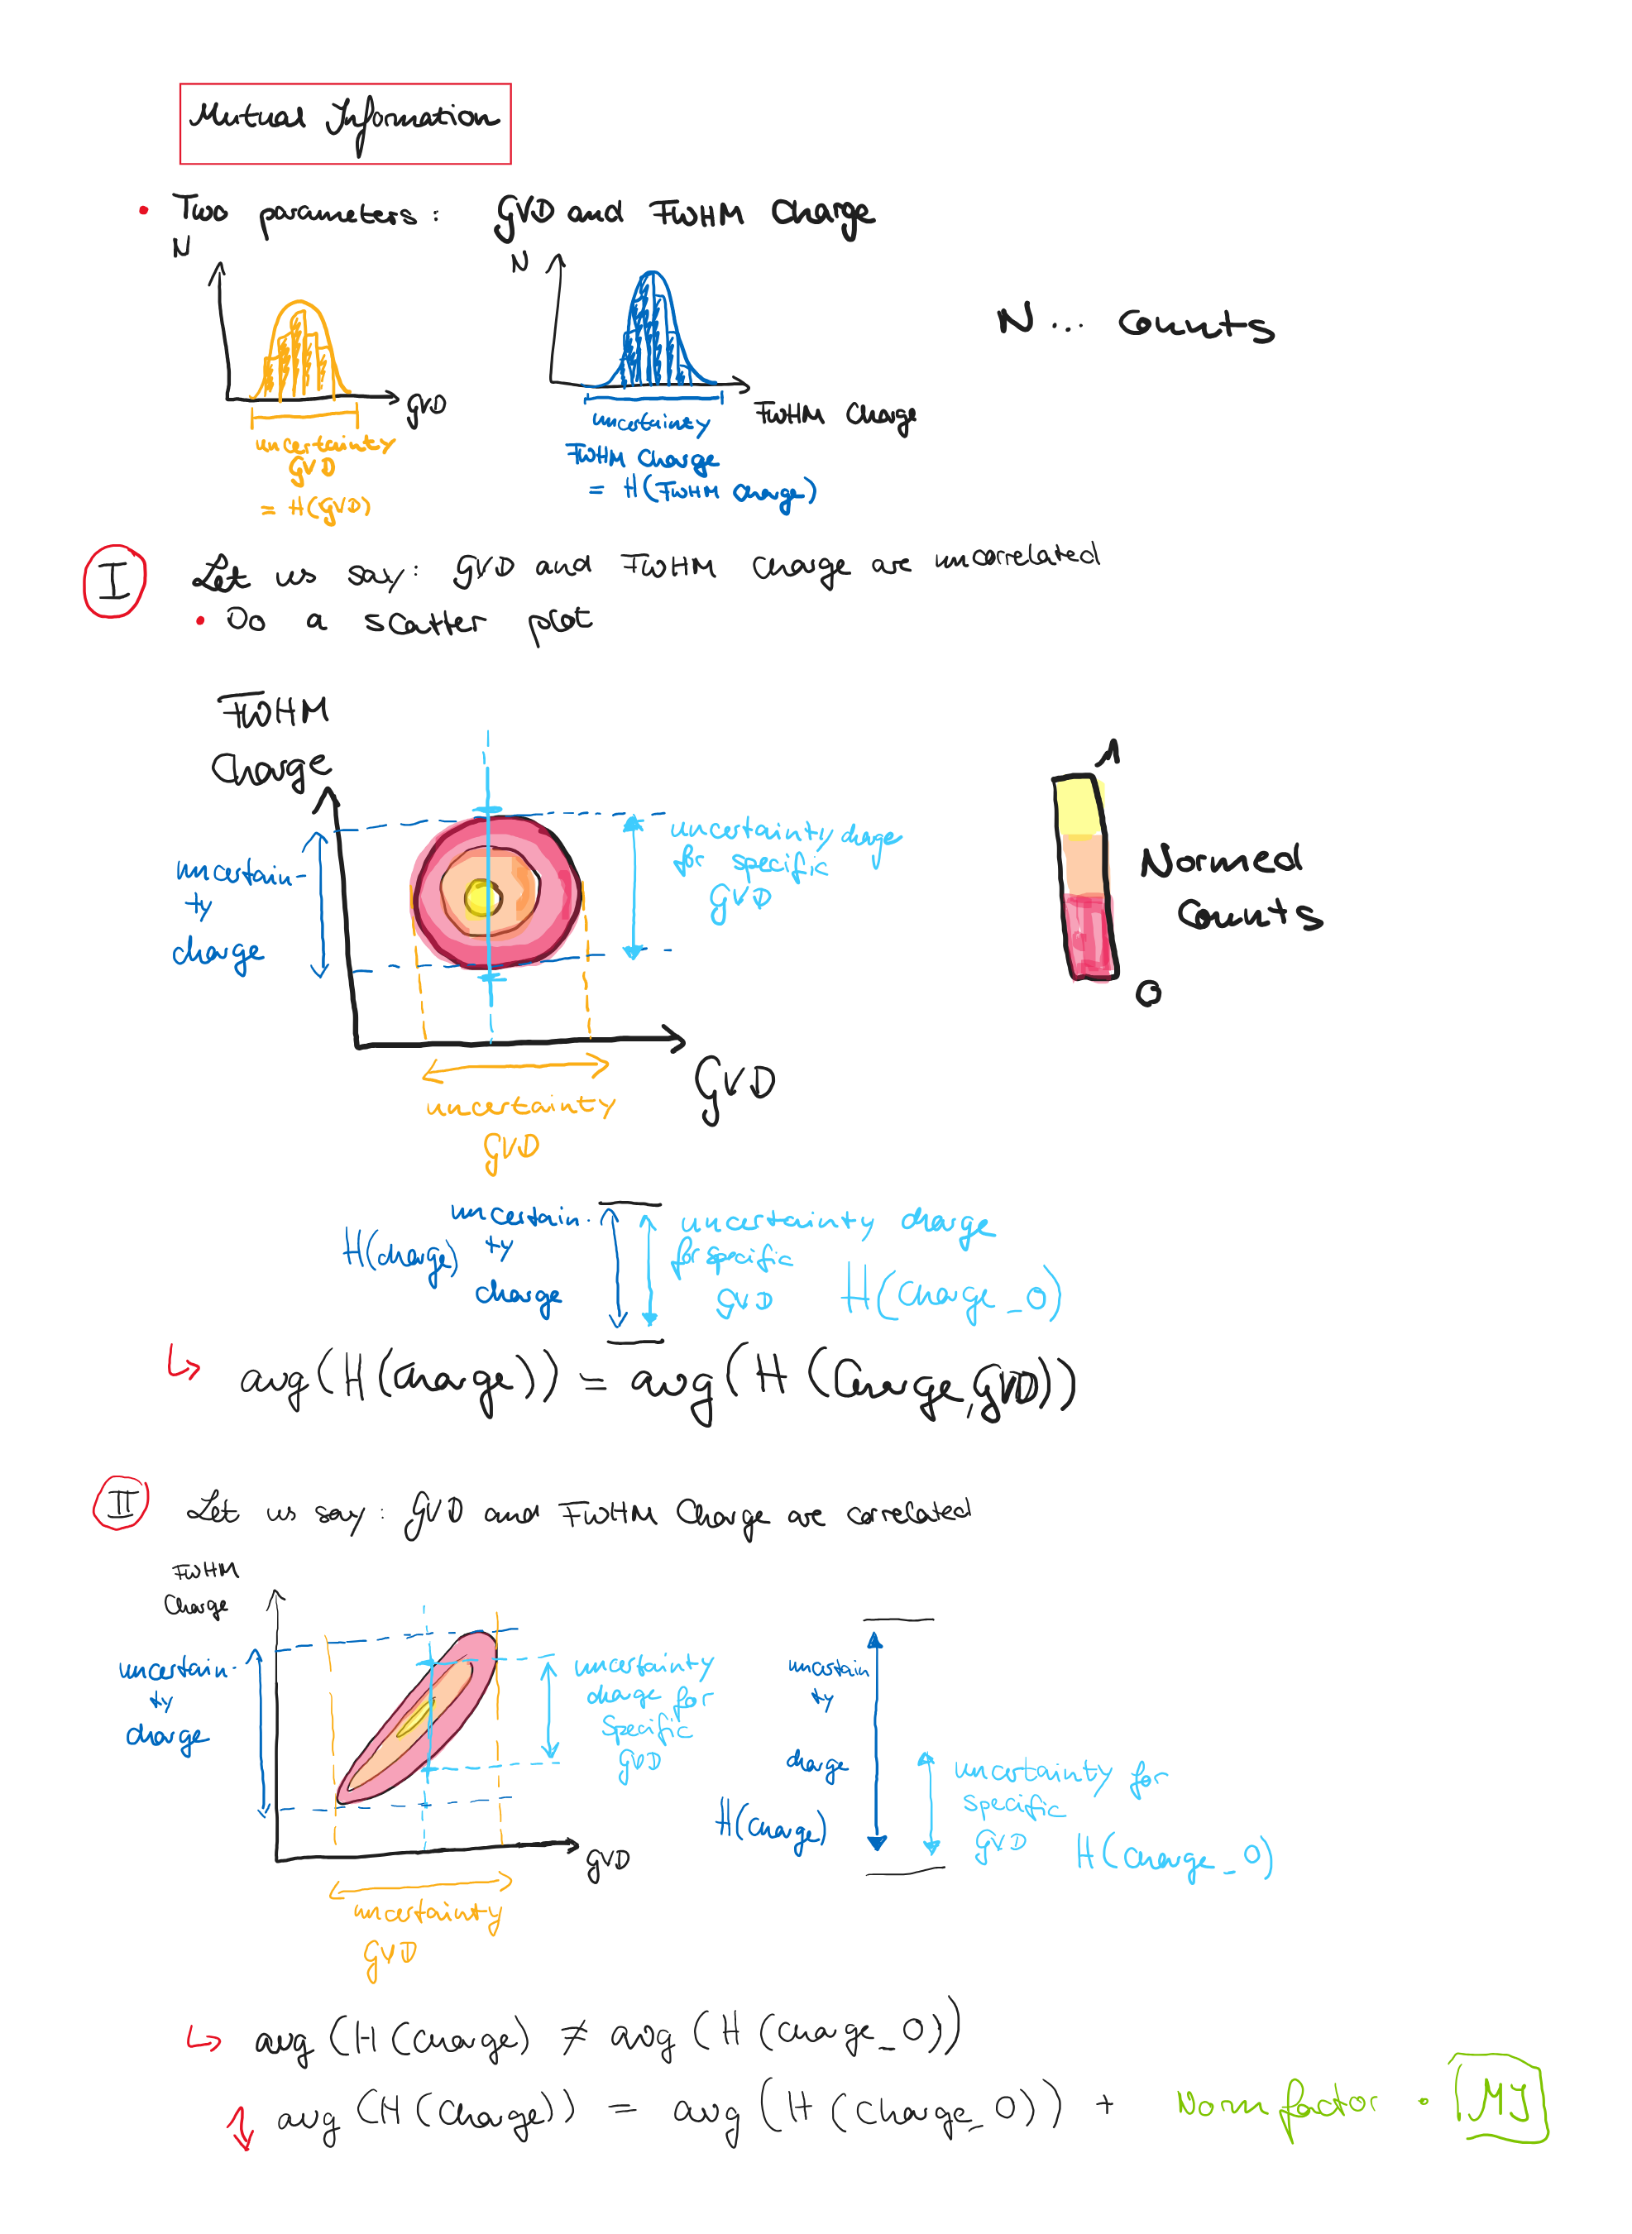 Mutual Information
• Two parameters: GVD and FWHM Charge
N
N
N ... Counts
GVD
FWHM Charge
uncertainty
GVD
= H(GVD)
uncertainty
FWHM Charge
= H(FWHM Charge)
I Let us say: GVD and FWHM Charge are uncorrelated
• Do a scatter plot
FWHM
Charge
uncertain-
ty
charge
uncertainty charge
for specific
GVD
1
Normed
Counts
0
GVD
uncertainty
GVD
H(charge) uncertain-
ty
charge
uncertainty charge
for specific
GVD H(Charge_0)
↳ avg(H(Charge)) = avg(H(Charge,GVD))
II Let us say: GVD and FWHM Charge are correlated
FWHM
Charge
uncertain-
ty
charge
uncertainty
charge for
specific
GVD
GVD
uncertainty
GVD
uncertain
ty
charge
H(Charge)
uncertainty for
specific
GVD H(Charge_0)
↳ avg(H(Charge) ≠ avg(H(Charge_0))
avg(H(Charge)) = avg(H(Charge_0)) + Norm factor · MI